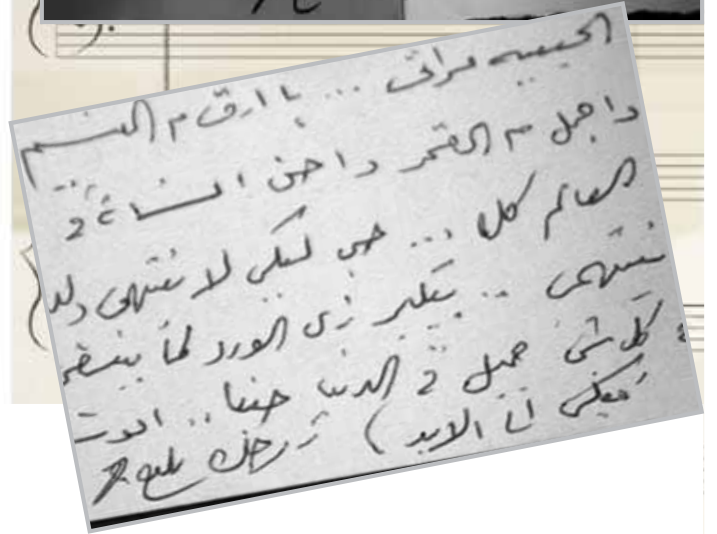 الحبيبه مراتى ... يا ارق م النسيم
واجمل م القمر واحن انسانة فى
العالم كله ... حبى ليكى لا ينتهى ولن
ينتهى .. بيكبر زى الورد لما بيتسقى
كل شئ جميل فى الدنيا حبنا .. انوت
معاكى الى الابد ) زوجك بليغ